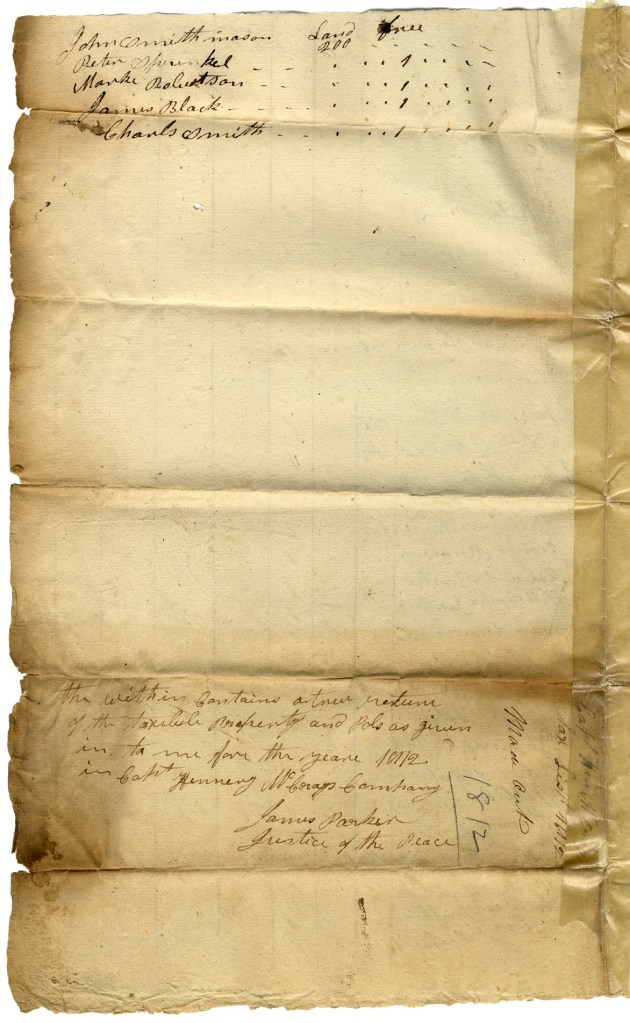 John Smith mason Land free
200
Peter Sprinkel - - . . 1 . . .
Marke Robertson - - . . 1 . . .
James Black - - - . . 1 . . .
Charls Smith - - . . 1 . . .
the within Contains a true return
of the Taxeble Property and Pols as given
in to me fore the yeare 1812
in Capt Hennery McCrays Company
James Parker
Justice of the Peace
1812
Made out
Tax List 1812
Capt